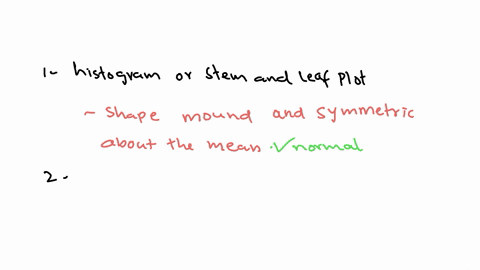 1- histogram or stem and leaf plot
- shape mound and symmetric
about the mean. ✓normal
2-